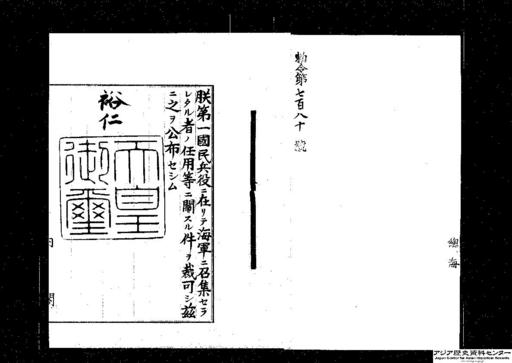 勅令第七百八十號
朕第一國民兵役ニ在リテ海軍ニ召集セラ
レタル者ノ任用等ニ關スル件ヲ裁可シ茲
ニ之ヲ公布セシム
裕仁
天皇
御璽
海
内
閣
アジア歴史資料センター
Japan Center for Asian Historical Records